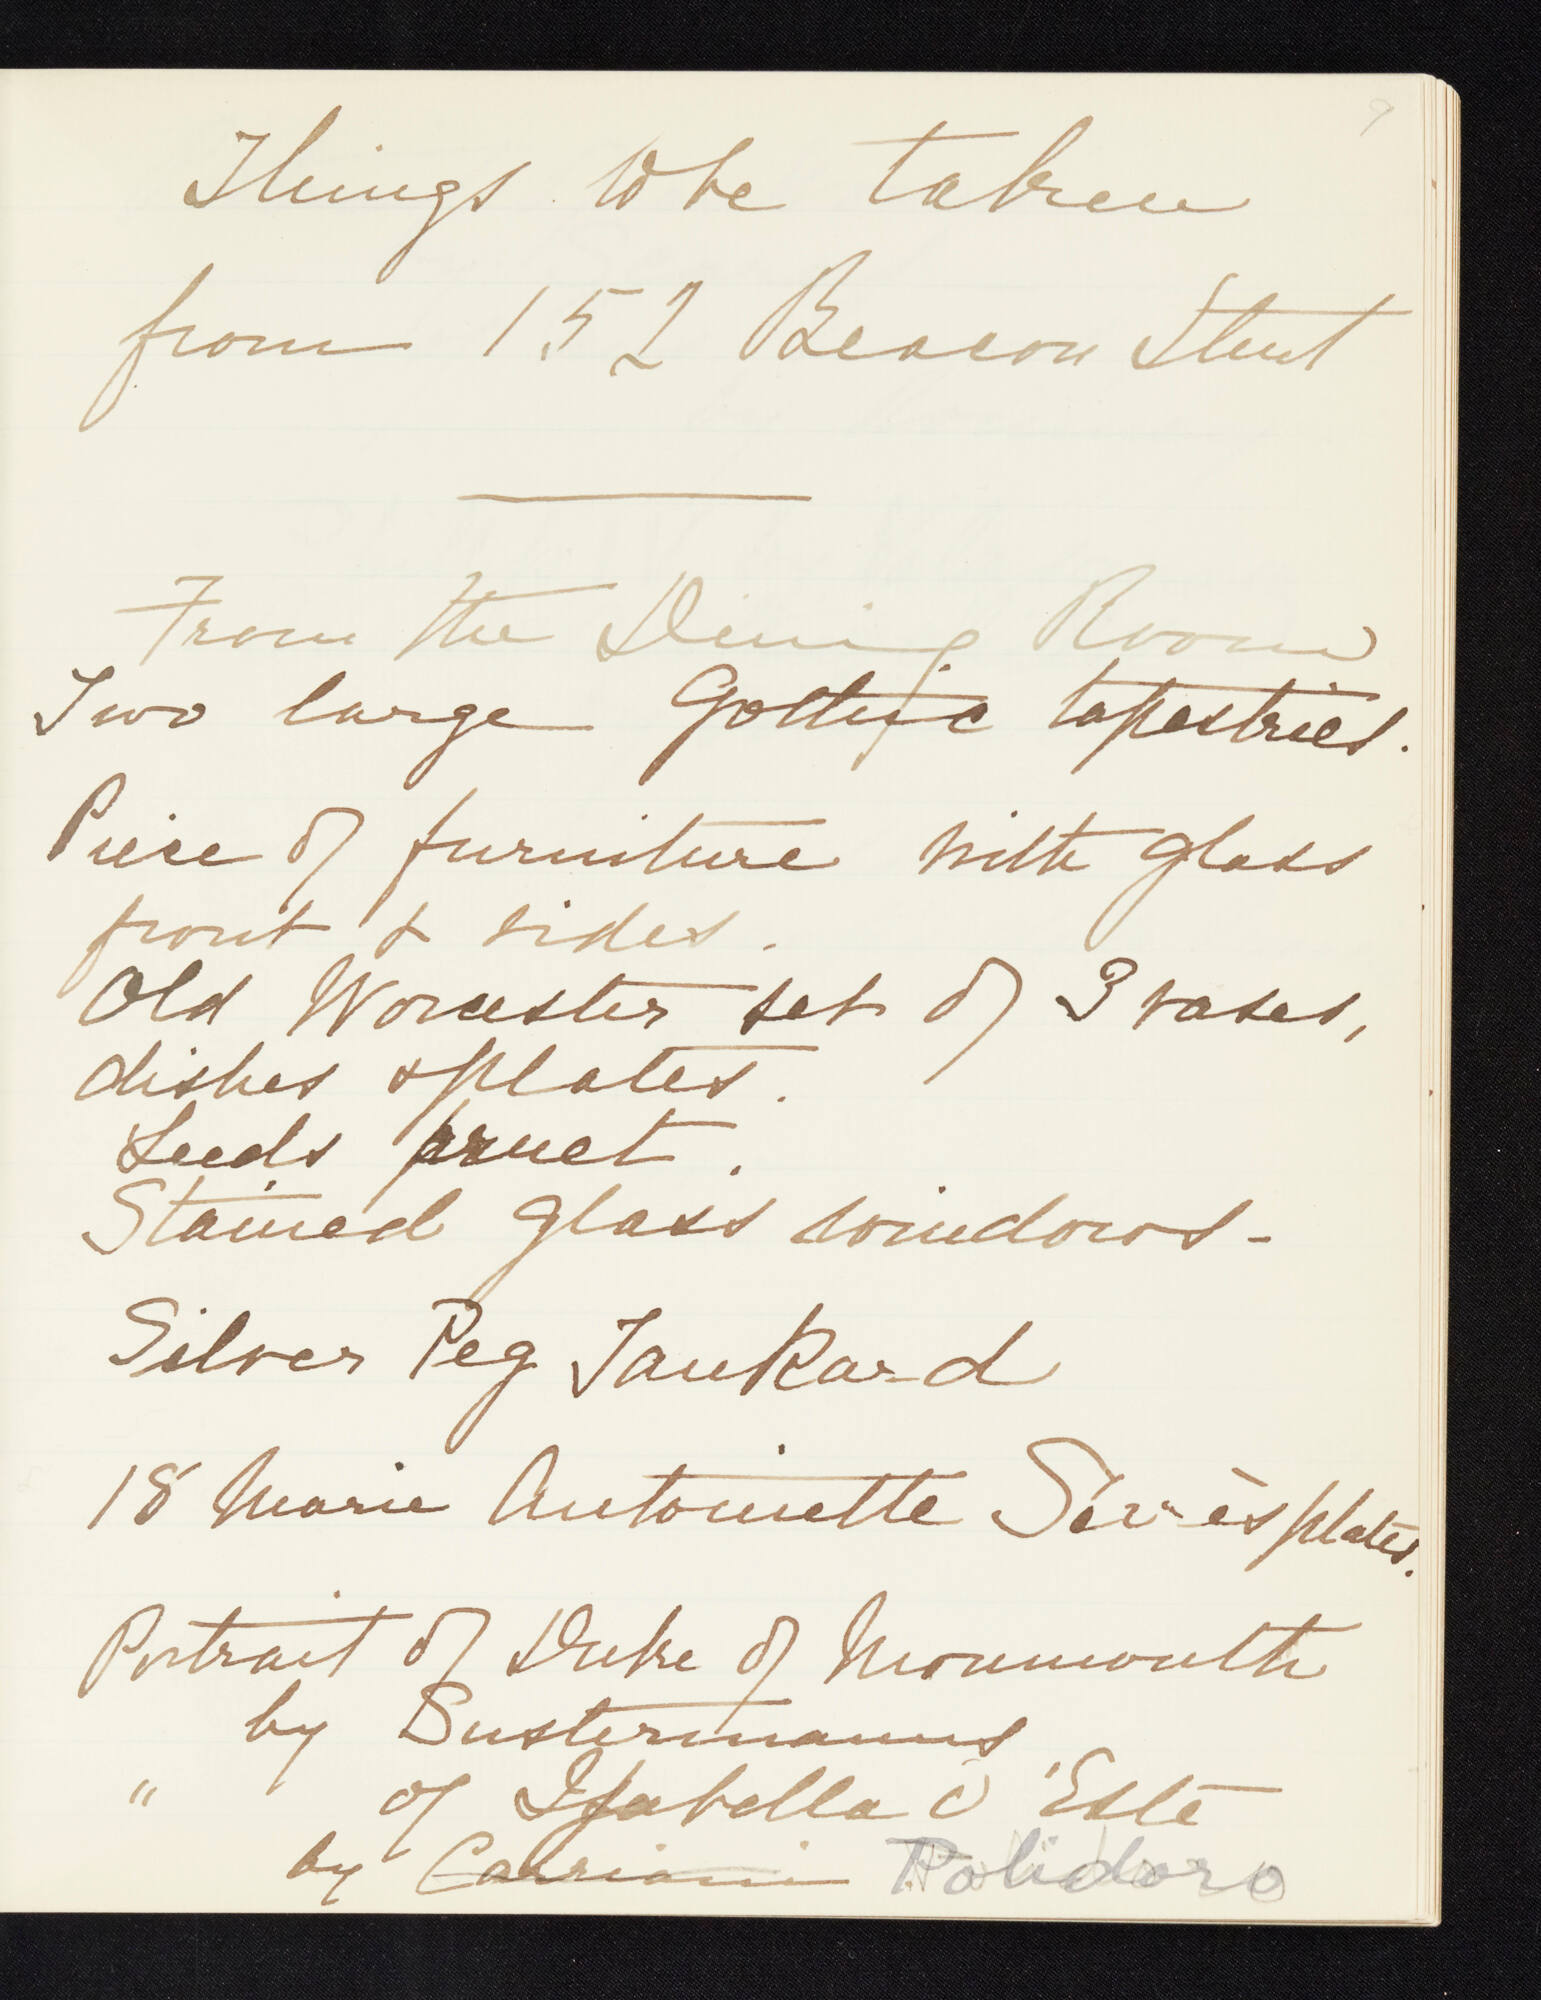 9
Things to be taken
from 152 Beacon Street
From the Dining Room
Two large Gothic tapestries.
Piece of furniture with glass
front & sides.
Old Worcester set of 3 vases,
dishes & plates.
Leeds cruet.
Stained glass windows -
Silver Peg Tankard
18 Marie Antoinette Sèvres plates.
Portrait of Duke of Monmouth
by Sustermanns
" of Isabella d'Este
by Carriani Polidoro